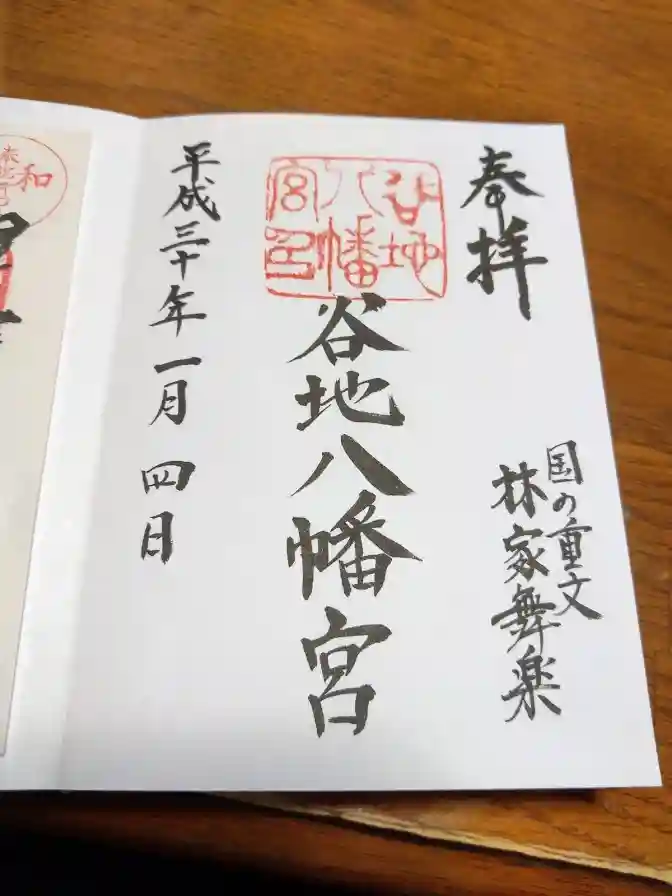 奉拝
国の重文
林家舞楽
谷地八幡宮
谷地
八幡
宮印
平成三十年一月四日
和